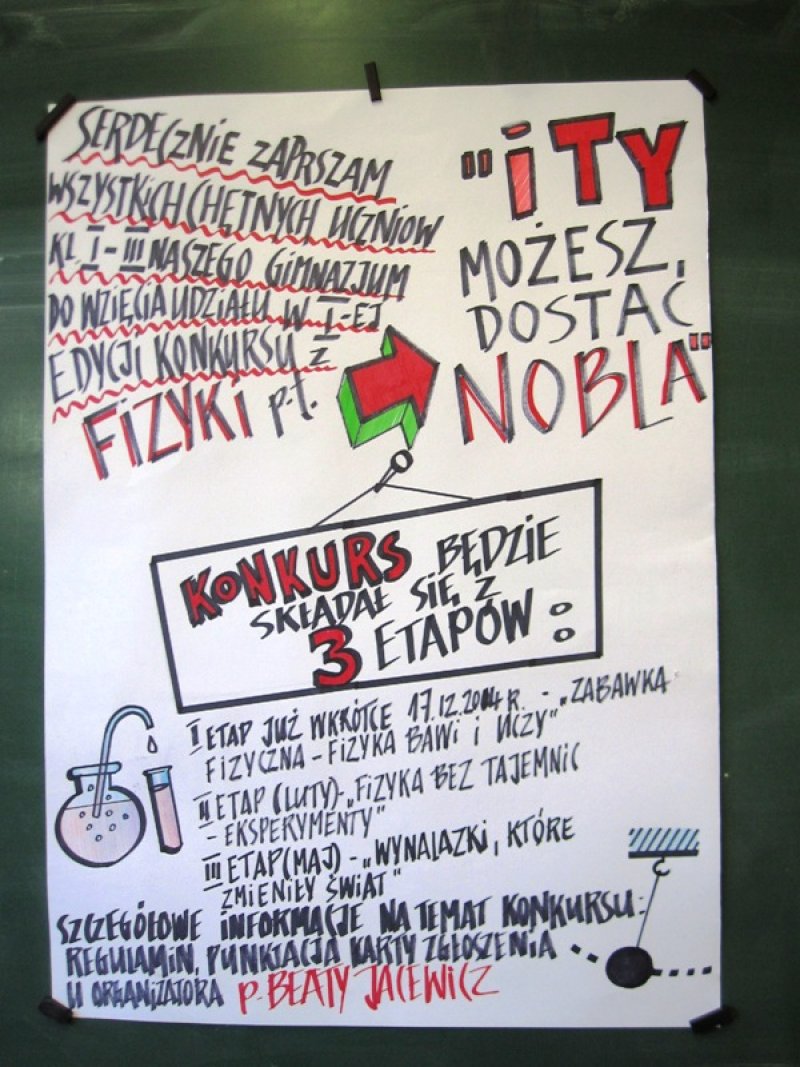 SERDECZNIE ZAPRSZAM
WSZYSTKICH CHĘTNYCH UCZNIÓW
KL. I-III NASZEGO GIMNAZJUM
DO WZIĘCIA UDZIAŁU W I-EJ
EDYCJI KONKURSU Z
FIZYKI p.t.
"i TY
MOŻESZ
DOSTAĆ
NOBLA"
KONKURS BĘDZIE
SKŁADAŁ SIĘ Z
3 ETAPÓW:
I ETAP JUŻ WKRÓTCE 17.12.2014 R. - „ZABAWKA
FIZYCZNA - FIZYKA BAWI I UCZY"
II ETAP (LUTY) - „FIZYKA BEZ TAJEMNIC
- EKSPERYMENTY"
III ETAP (MAJ) - „WYNALAZKI, KTÓRE
ZMIENIŁY ŚWIAT"
SZCZEGÓŁOWE INFORMACJE NA TEMAT KONKURSU:
REGULAMIN, PUNKTACJA KARTY ZGŁOSZENIA
U ORGANIZATORA p. BEATY JACEWICZ